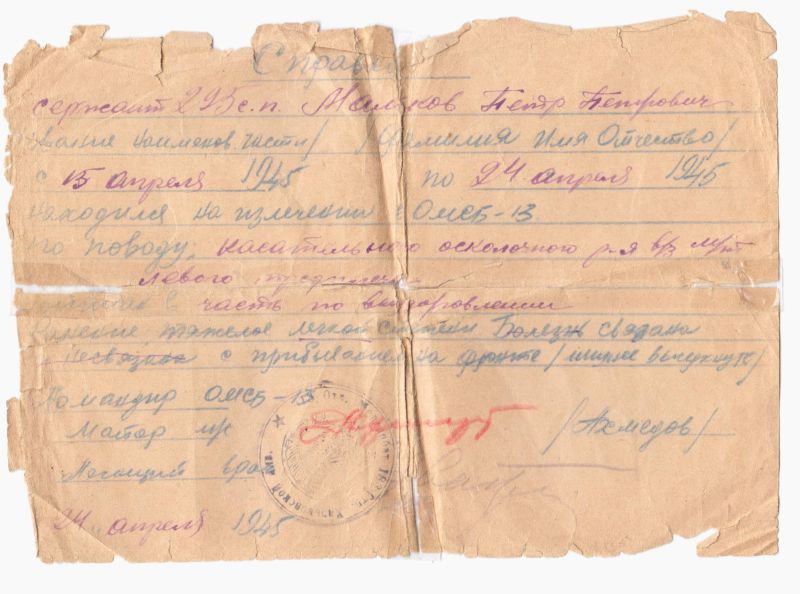 Справка
сержант 295 с.п. Малков Петр Петрович
звание наименов. части/ /фамилия имя отчество/
с 15 апреля 1945 по 24 апреля 1945
находился на излечении в ОМСБ-13.
по поводу: касательного осколочного р-я в/з
левого
в часть по выздоровлении
тяжелое легкой Болезнь связана
несвязана с прибыванием на фронте /лишнее
Командир ОМСБ-13
Майор м/с /Ахмедов/
врач
24 апреля 1945